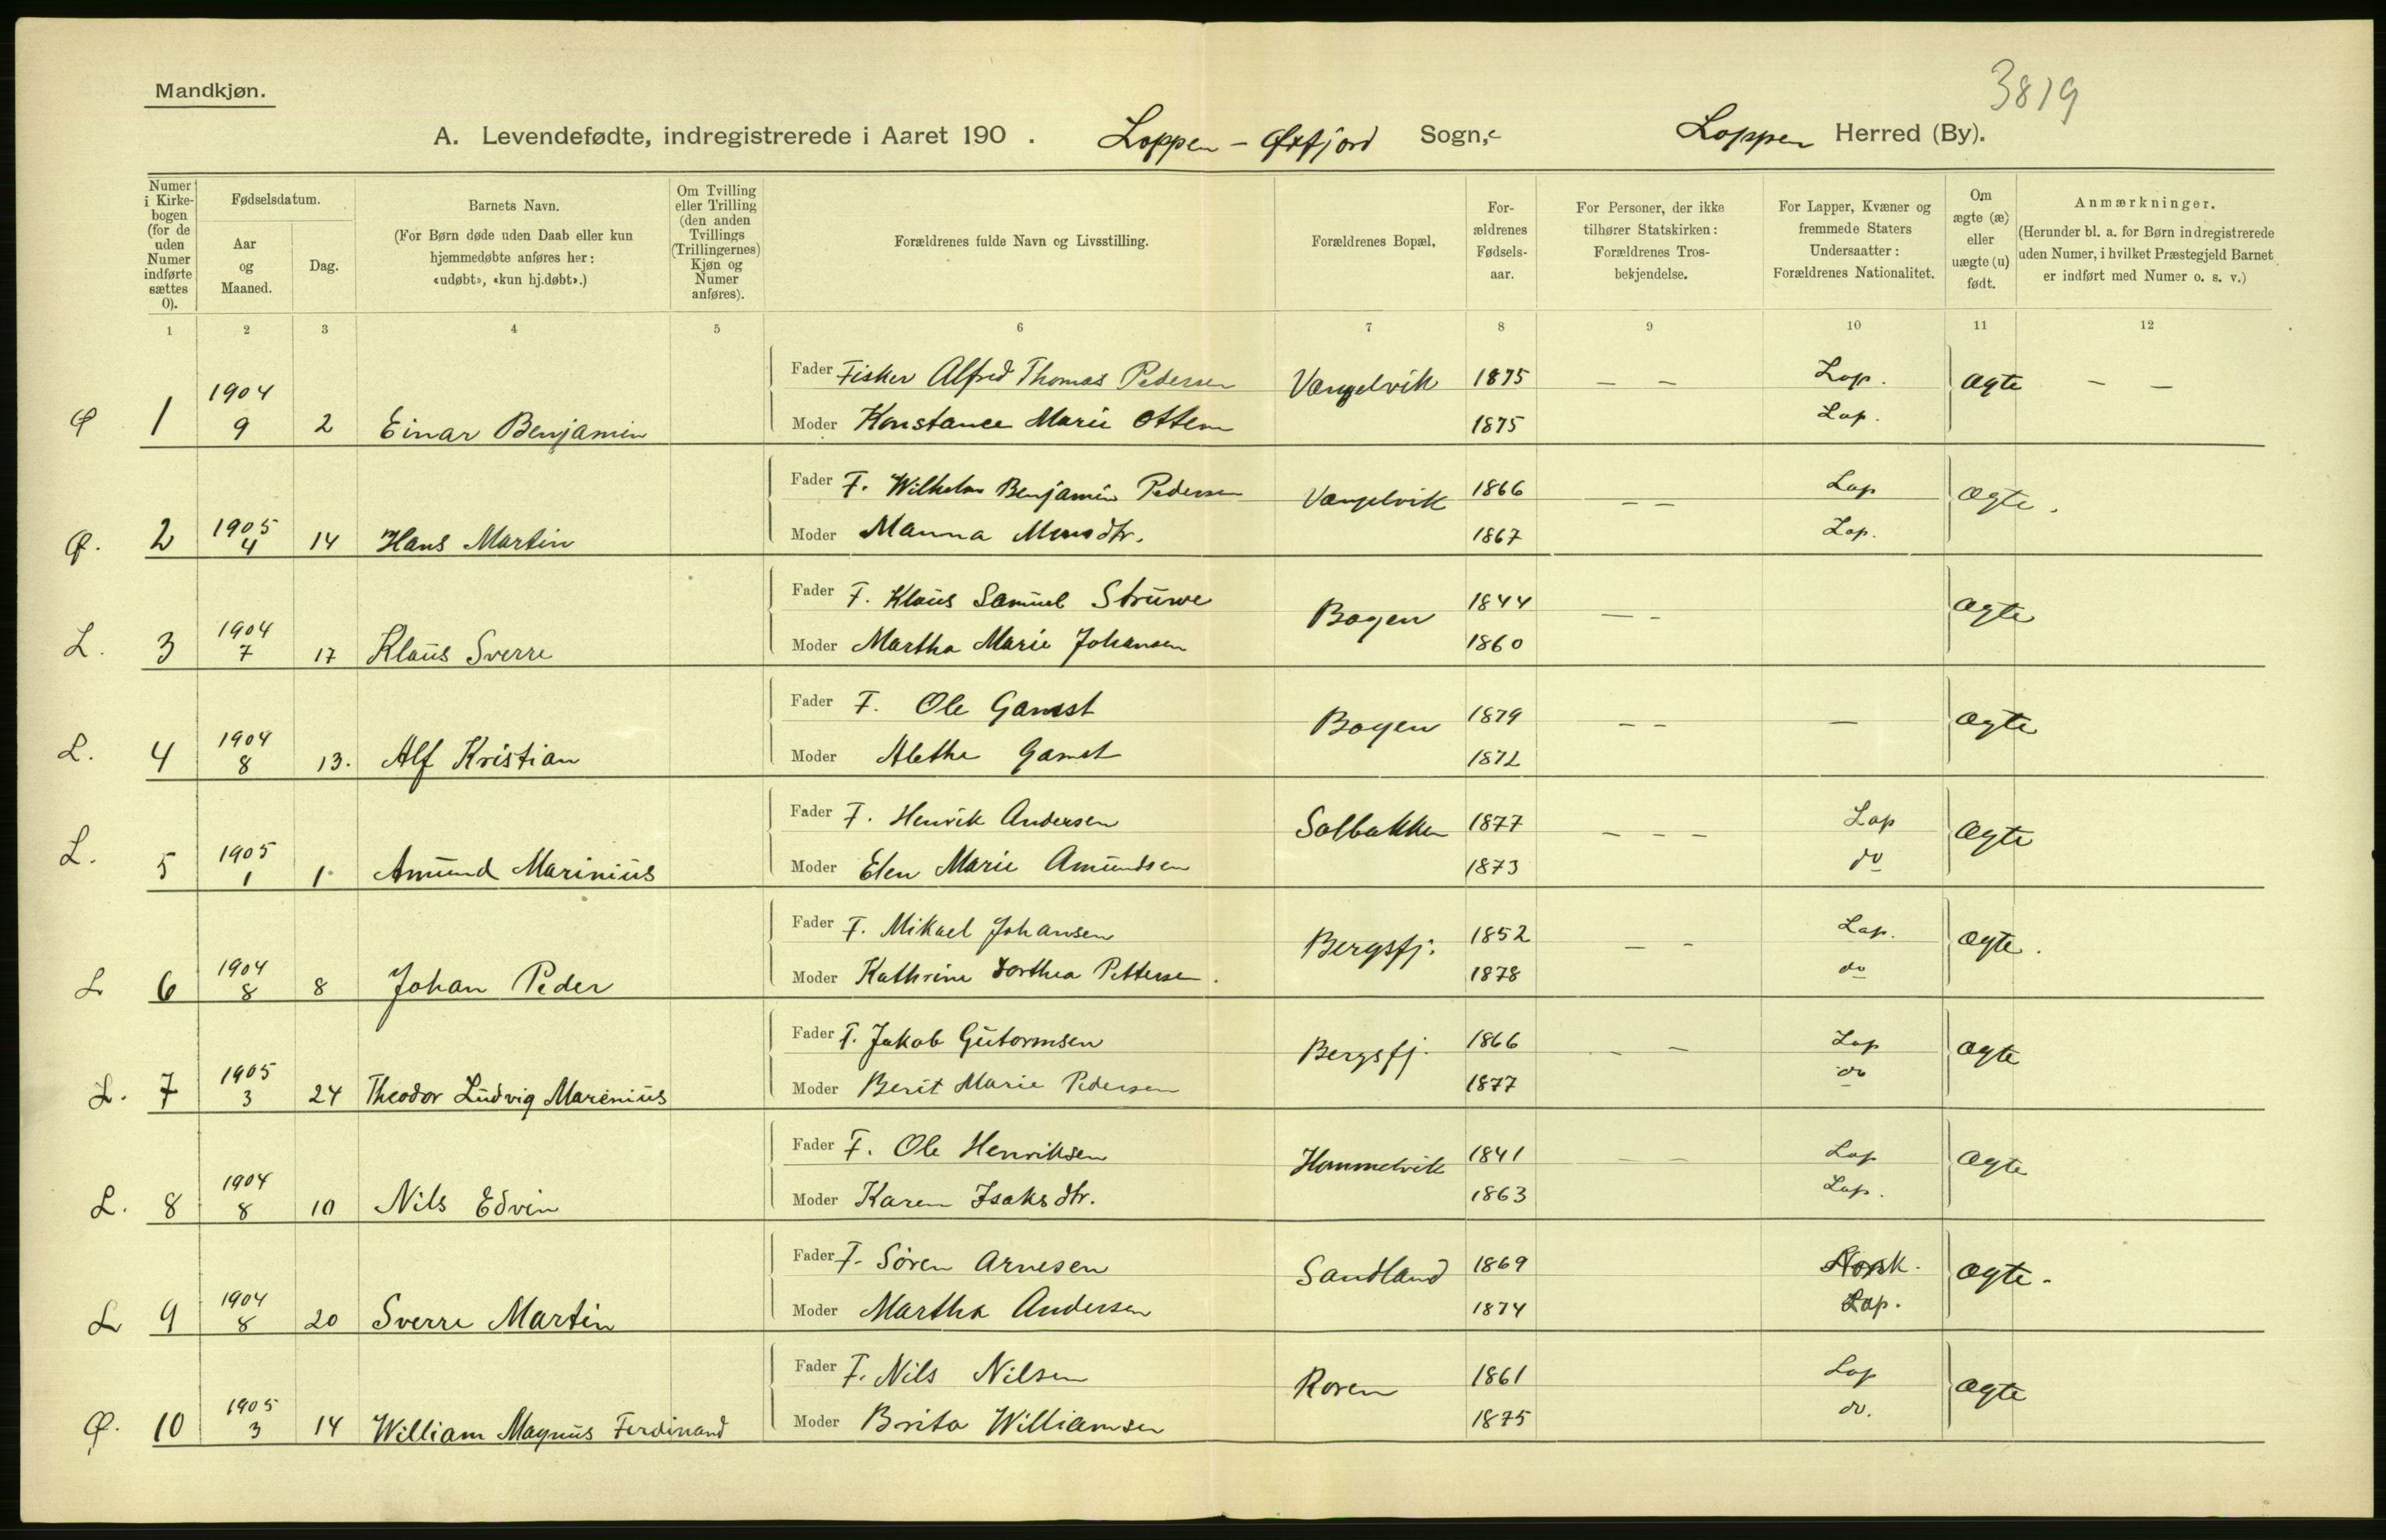 Mandkjøn.
3819
A. Levendefødte, indregistrerede i Aaret 190 . Loppen - Øxfjord Sogn, Loppen Herred (By).
Numer i Kirkebogen (for de uden Numer indførte sættes 0).
Fødselsdatum.
Aar og Maaned.
Dag.
Barnets Navn.
(For Børn døde uden Daab eller kun hjemmedøbte anføres her: «udøbt», «kun hj.døbt».)
Om Tvilling eller Trilling (den anden Tvillings (Trillingernes) Kjøn og Numer anføres).
Forældrenes fulde Navn og Livsstilling.
Forældrenes Bopæl,
Forældrenes Fødselsaar.
For Personer, der ikke tilhører Statskirken: Forældrenes Trosbekjendelse.
For Lapper, Kvæner og fremmede Staters Undersaatter: Forældrenes Nationalitet.
Om ægte (æ) eller uægte (u) født.
Anmærkninger.
(Herunder bl. a. for Børn indregistrerede uden Numer, i hvilket Præstegjeld Barnet er indført med Numer o. s. v.)
1 2 3 4 5 6 7 8 9 10 11 12
Ø 1 1904 9 2 Einar Benjamin
Fader Fisker Alfred Thomas Pedersen Vangelvik 1875 — — Lap. ægte — —
Moder Konstance Marie Ottem 1875 Lap.
Ø. 2 1905 4 14 Hans Martin
Fader F. Wilhelm Benjamin Pedersen Vangelvik 1866 — — Lap ægte.
Moder Manna Monsdtr. 1867 Lap.
L. 3 1904 7 17 Klaus Sverre
Fader F. Klaus Samuel Struwe Bogen 1844 — - ægte
Moder Martha Marie Johansen 1860
L. 4 1904 8 13. Alf Kristian
Fader F. Ole Gamst Bogen 1879 — — — ægte
Moder Alethe Gamst 1872
L. 5 1905 1 1. Amund Marinius
Fader F. Henrik Andersen Solbakken 1877 — — — Lap ægte
Moder Elen Marie Amundsen 1873 do
L 6 1904 8 8 Johan Peder
Fader F. Mikael Johansen Bergsfj. 1852 — - Lap. ægte.
Moder Kathrine Dorthea Pettersen. 1878 do
L. 7 1905 3 24 Theodor Ludvig Marenius
Fader F. Jakob Gutormsen Bergsfj. 1866 - — Lap ægte
Moder Berit Marie Pedersen 1877 do
L. 8 1904 8 10 Nils Edvin
Fader F. Ole Henriksen Hammelvik 1841 — — Lap ægte
Moder Karen Isaksdtr. 1863 Lap.
L 9 1904 8 20 Sverre Martin
Fader F. Søren Arnesen Sandland 1869 Norsk. ægte.
Moder Martha Andersen 1874 Lap.
Ø. 10 1905 3 14 William Magnus Ferdinand
Fader F. Nils Nilsen Roren 1861 Lap ægte
Moder Brita Williamsen 1875 do.